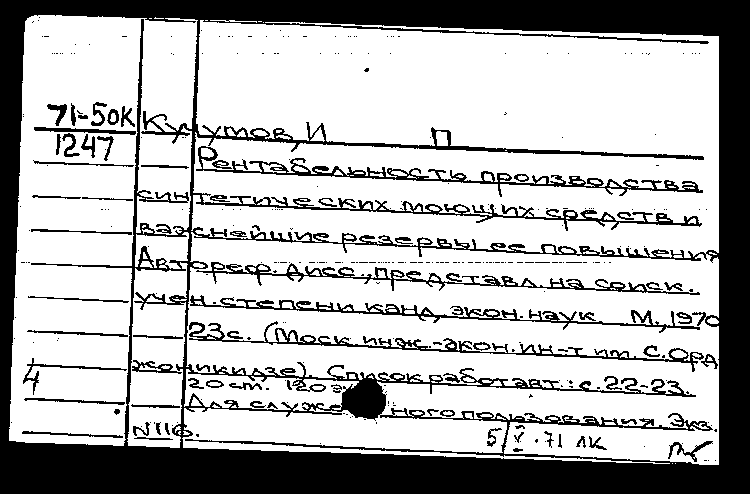 71-5ОК
1247
Кумутов, И П
Рентабельность производства
синтетических моющих средств и
важнейшие резервы ее повышения
Автореф. дисс., представл. на соиск.
учен. степени канд. экон. наук М., 1970
23с. (Моск. инж.-экон. ин-т им. С. Орд
жоникидзе). Список работ авт.: с. 22-23.
20 ст. 120 эк
4
Для служе ного пользования. Экз.
N116.
5/V.71 ЛК